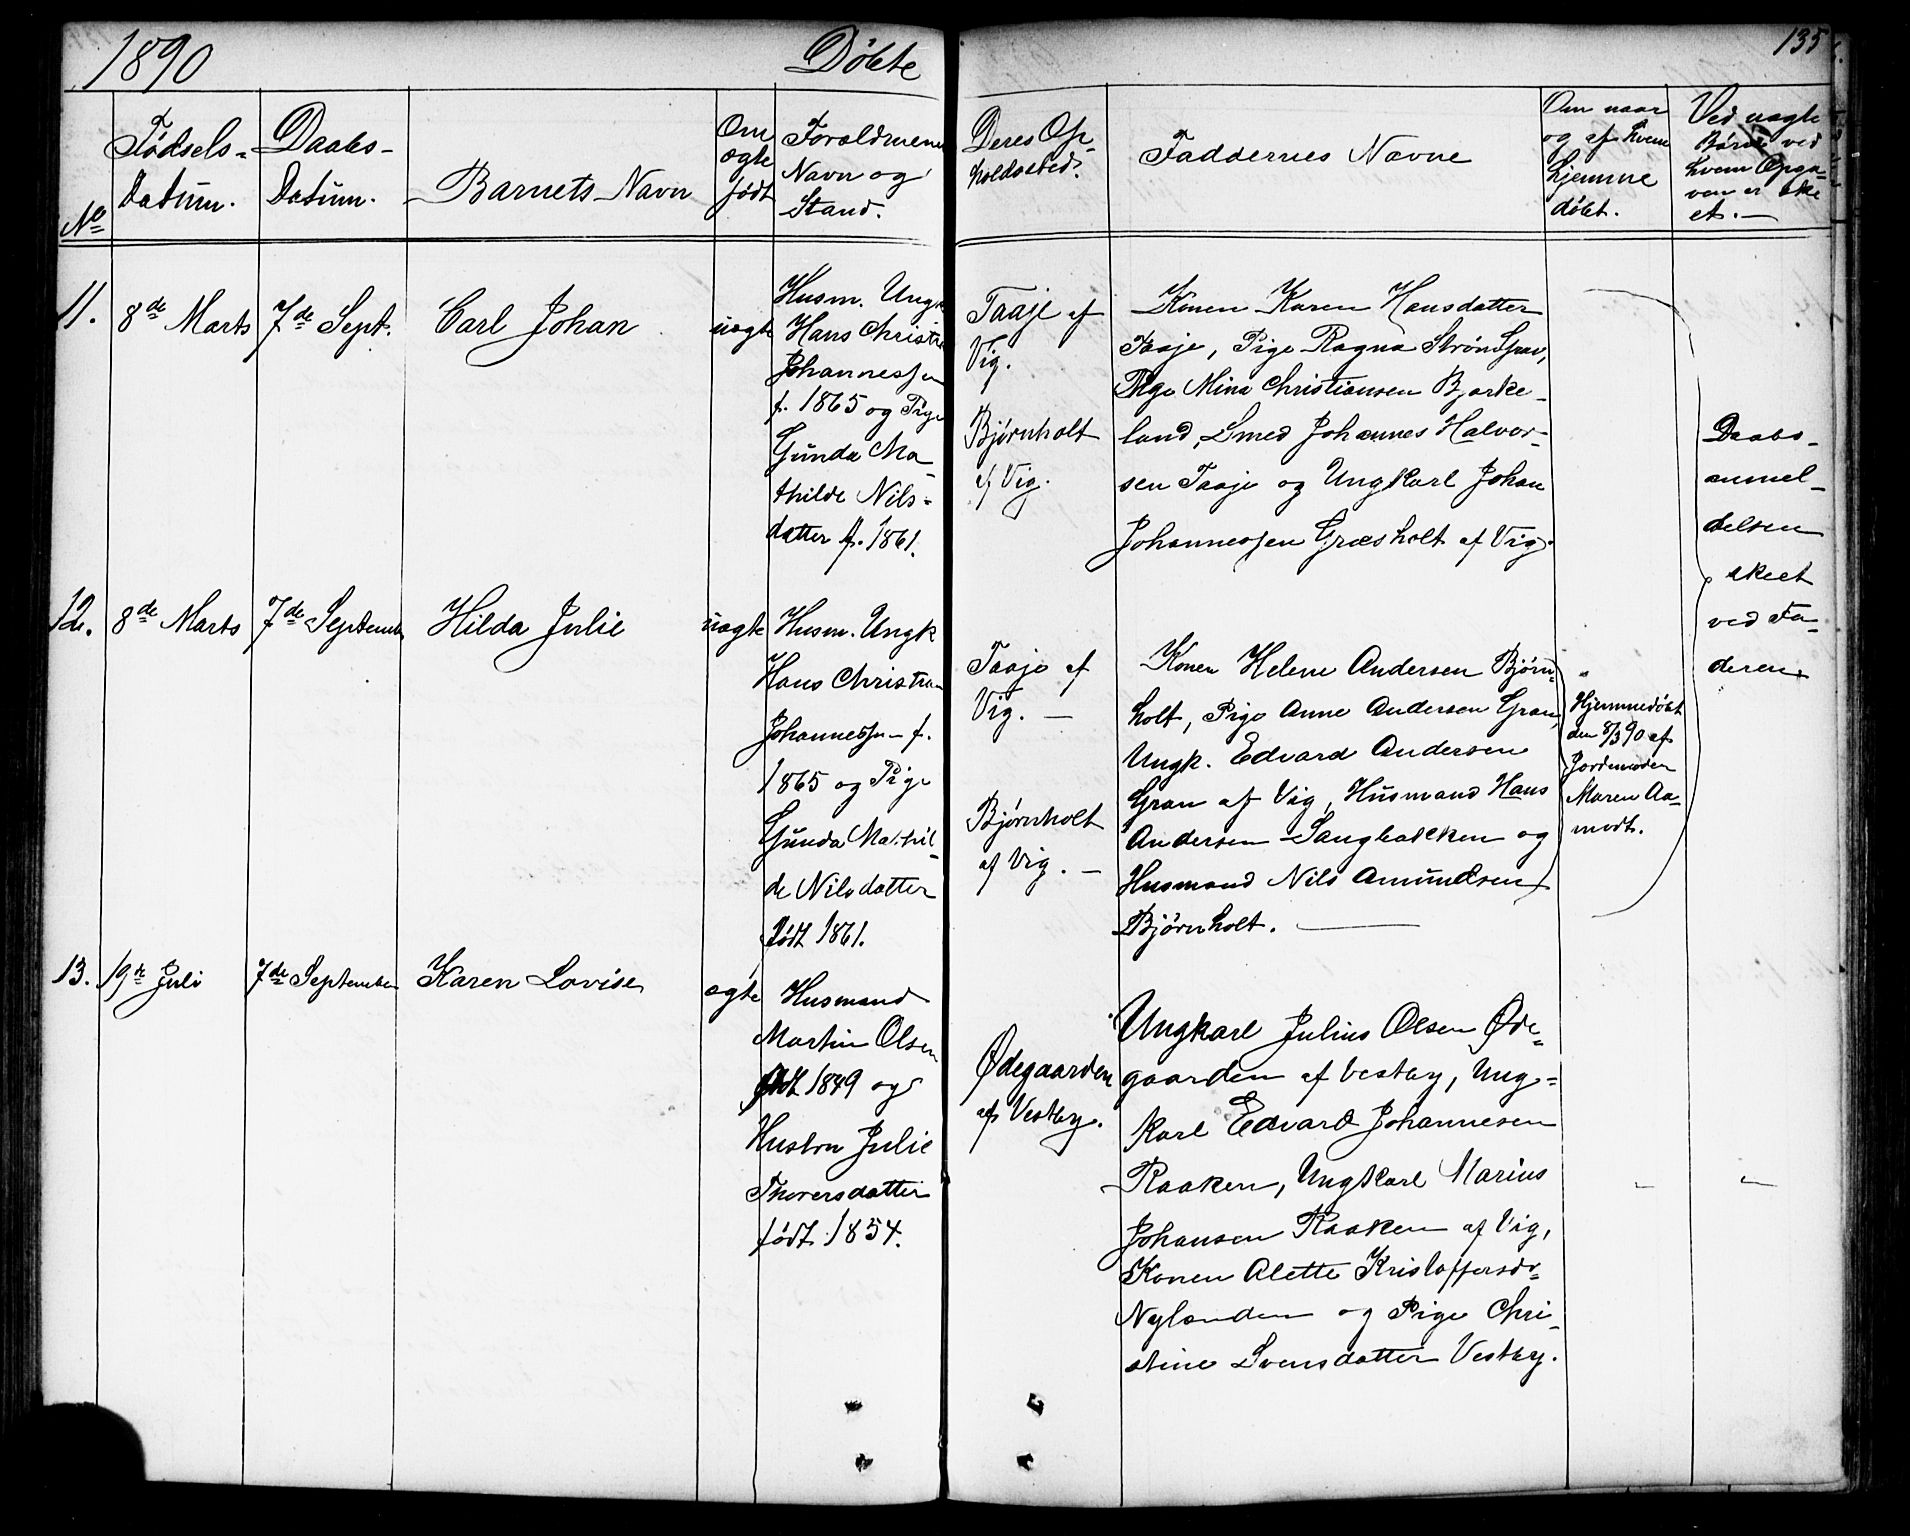 1890
Döbte
135
No
Födsels-
Datum.
Daabs-
Datum.
Barnets Navn
Om
ægte
født
Forældrenes
Navn og
Stand.
Deres Op-
holdssted.
Faddernes Navne
Om naar
og af hvem
hjemme
döbt.
Ved uægte
Børn ved
hvem Opga-
ven er ske
et. —
11.
8de Marts
7de Sept.
Carl Johan
uægte
Husm. Ungk
Hans Christian
Johannessen
f. 1865 og Pige
Gunda Ma-
thilde Nils-
datter f. 1861.
Taaje af
Vig.
Bjørnholt
af Vig.
Konen Karen Hansdatter
Taaje, Pige Ragna
Pige Mina Christiansen Bjørke-
land, Smed Johannes Halvor-
sen Taaje og Ungkarl Johan
Johannessen Græsholt af Vig.
Daabs-
anmel-
delsen
skeet
ved Fa-
deren.
12.
8de Marts
7de Septemb
Hilda Julie
uægte
Husm. Ungk
Hans Christian
Johannessen f.
1865 og Pige
Gunda Mathil-
de Nilsdatter
født 1861.
Taaje af
Vig. —
Bjørnholt
af Vig. —
Konen Helene Andersen Bjørn-
holt, Pige Anne Andersen Gran
Ungk. Edvard Andersen
Gran af Vig, Husmand Hans
Andersen Sangbakken og
Husmand Nils Amundsen
Bjørnholt. —
"
Hjemmedöbt
den 8/3 90 af
Jordemoder
Maren Aa-
modt.
13.
19de Juli
7de September
Karen Lovise
ægte
Husmand
Martin Olsen
født 1849 og
Hustru Julie
Thorersdatter
født 1854.
Ødegaarden
af Vestby.
Ungkarl Julius Olsen Øde-
gaarden af Vestby, Ung-
karl Edvard Johannesen
Raaken, Ungkarl Marius
Johansen Raaken af Vig,
Konen Alette Kristoffersdr
Nylænden og Pige Chri-
stine Svensdatter Vestby.